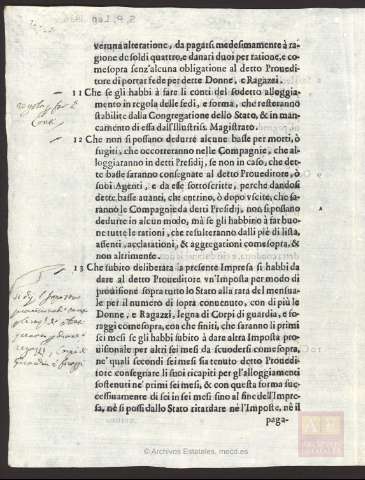 veruna alteratione, da pagarsi medesimamente à ra-
gione de soldi quattro, e danari duoi per ratione, e co-
mesopra senz'alcuna obligatione al detto Proueditore
di portar fede per dette Donne, e Ragazzi.
11 Che se gli habbi à fare li conti del sodetto alloggia-
mento in regola delle fedi, e forma, che resteranno
stabilite dalla Congregatione dello Stato, & in man-
camento di essa dall'Illustriss. Magistrato.
12 Che non si possano dedurre alcune basse per morti, ò
fugiti, che occorreranno nelle Compagnie, che al-
loggiaranno in detti Presidij, se non in caso, che det-
te basse saranno consegnate al detto Proueditore, ò
suoi Agenti, e da esse sottoscritte, perche dandosi
dette basse auanti, che entrino, ò dopo viscite, che sa-
ranno le Compagnie da detti Presidij, non si possano
dedurre in alcun modo, mà se gli habbino à far buo-
ne tutte le rationi, che resulteranno dalli piè di lista,
assenti, acclarationi, & aggregationi comesopra, &
non altrimente.
13 Che subito deliberata la presente Impresa si habbi da
dare al detto Proueditore vn'Imposta per modo di
prouisione sopra tutto lo Stato alla rata del mensua-
le per il numero di sopra contenuto, con di più le
Donne, e Ragazzi, legna di Corpi di guardia, e fo-
raggi comesopra, con che finiti, che saranno li primi
sei mesi se gli habbi subito à dare altra Imposta pro-
uisionale per altri sei mesi da scuodersi comesopra,
ne' quali secondi sei mesi sia tenuto detto Proueditore
consegnare li suoi ricapiti per gl'alloggiamenti
sostenuti ne' primi sei mesi, & con questa forma suc-
cessiuamente di sei in sei mesi sino al fine dell'Impre-
sa, nè si possi dallo Stato ritardare nè l'Imposte, nè il
paga-
© Archivos Estatales, mecd.es